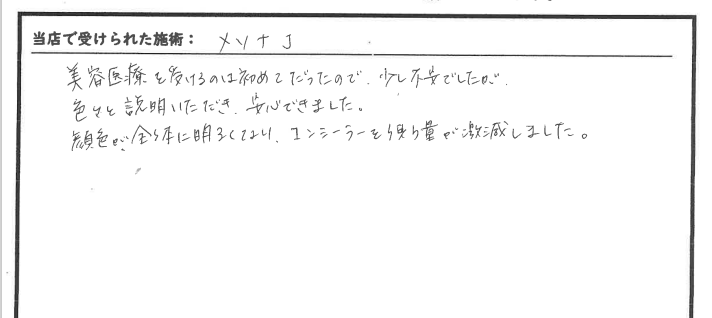 当店で受けられた施術： メソナJ
美容医療を受けるのは初めてだったので、少し不安でしたが、
色々と説明いただき、安心できました。
顔色が、全体に明るくなり、コンシーラーを使う量が激減しました。